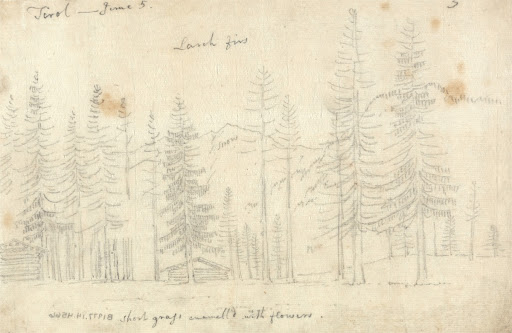 Tirol — June 5.
3
Larch firs
snow
short grass enamell'd with flowers.